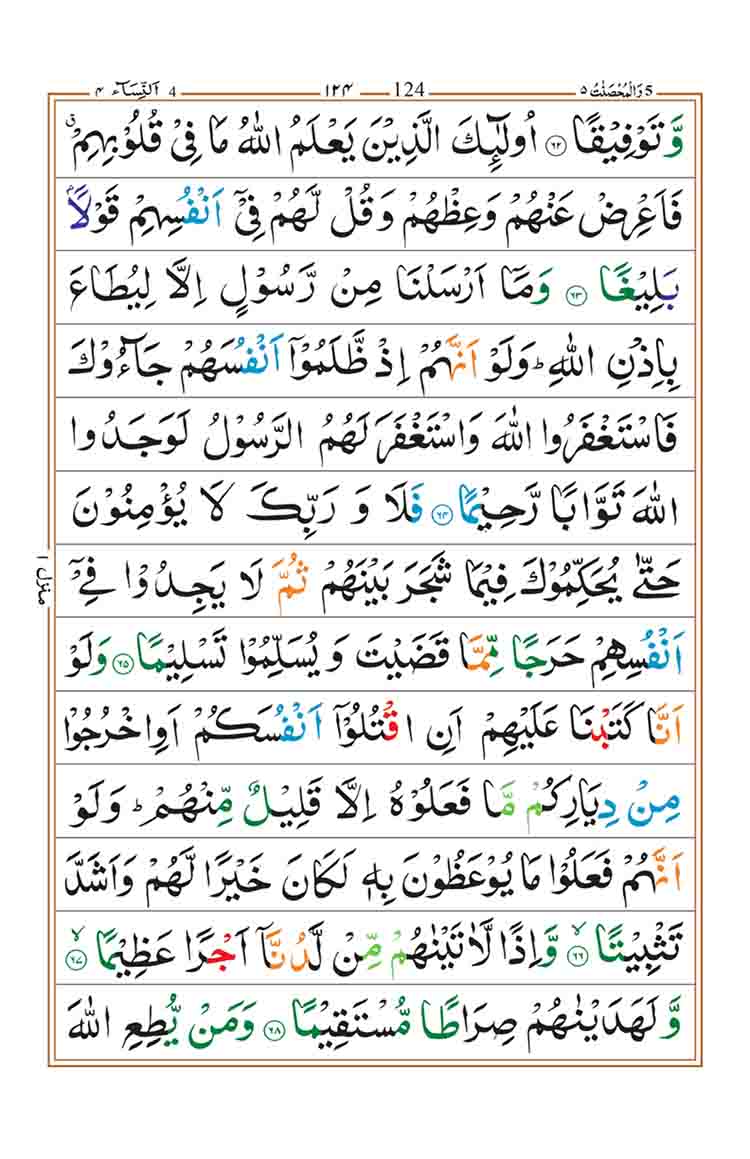 5 وَالْمُحْصَنٰتُ ٥ 124 ١٢٤ 4 اَلنِّسَآء ٤
وَّ تَوْفِیْقًا ﴿۶۲﴾ اُولٰٓئِكَ الَّذِیْنَ یَعْلَمُ اللّٰهُ مَا فِیْ قُلُوْبِهِمْۗ
فَاَعْرِضْ عَنْهُمْ وَعِظْهُمْ وَقُلْ لَّهُمْ فِیْۤ اَنْفُسِهِمْ قَوْلًۢا
بَلِیْغًا ﴿۶۳﴾ وَمَاۤ اَرْسَلْنَا مِنْ رَّسُوْلٍ اِلَّا لِیُطَاعَ
بِاِذْنِ اللّٰهِؕ وَلَوْ اَنَّهُمْ اِذْ ظَّلَمُوْۤا اَنْفُسَهُمْ جَآءُوْكَ
فَاسْتَغْفَرُوا اللّٰهَ وَاسْتَغْفَرَ لَهُمُ الرَّسُوْلُ لَوَجَدُوا
اللّٰهَ تَوَّابًا رَّحِیْمًا ﴿۶۴﴾ فَلَا وَ رَبِّكَ لَا یُؤْمِنُوْنَ
حَتّٰی یُحَكِّمُوْكَ فِیْمَا شَجَرَ بَیْنَهُمْ ثُمَّ لَا یَجِدُوْا فِیْۤ
اَنْفُسِهِمْ حَرَجًا مِّمَّا قَضَیْتَ وَ یُسَلِّمُوْا تَسْلِیْمًا ﴿۶۵﴾ وَلَوْ
اَنَّا كَتَبْنَا عَلَیْهِمْ اَنِ اقْتُلُوْۤا اَنْفُسَكُمْ اَوِ اخْرُجُوْا
مِنْ دِیَارِكُمْ مَّا فَعَلُوْهُ اِلَّا قَلِیْلٌ مِّنْهُمْؕ وَلَوْ
اَنَّهُمْ فَعَلُوْا مَا یُوْعَظُوْنَ بِهٖ لَكَانَ خَیْرًا لَّهُمْ وَاَشَدَّ
تَثْبِیْتًا ﴿۶۶﴾ۙ وَّاِذًا لَّاٰتَیْنٰهُمْ مِّنْ لَّدُنَّاۤ اَجْرًا عَظِیْمًا ﴿۶۷﴾ۙ
وَّ لَهَدَیْنٰهُمْ صِرَاطًا مُّسْتَقِیْمًا ﴿۶۸﴾ وَمَنْ یُّطِعِ اللّٰهَ
منزل ١